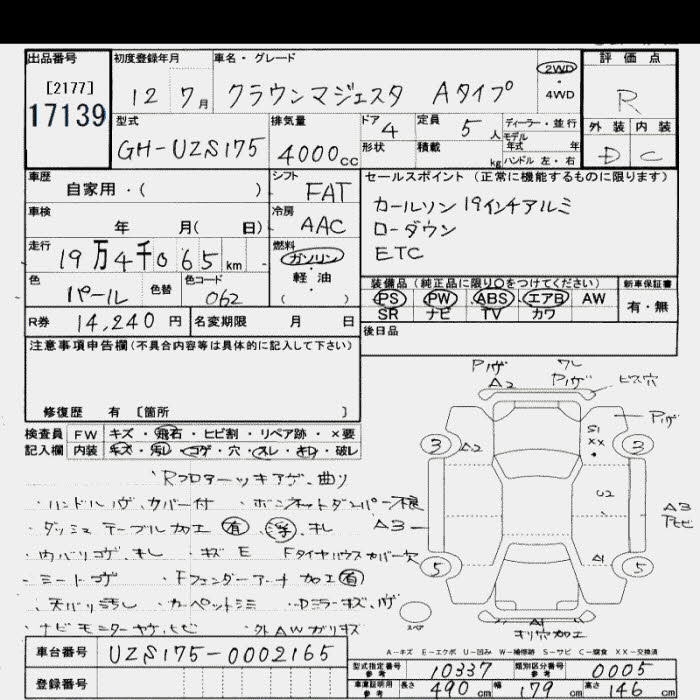 出品番号 初度登録年月 車名・グレード 評価点
[2177]
17139
12 7月 クラウンマジェスタ Aタイプ 2WD・4WD R
型式 排気量 ドア 4 定員 5人 ディーラー・並行 外装 内装
モデル年式 年
GH-UZS175 4000cc 形状 積載 kg ハンドル 左・右 D C
車歴 シフト セールスポイント(正常に機能するものに限ります)
自家用・( ) FAT カールソン19インチアルミ
車検 冷房 ローダウン
年 月( 日) AAC ETC
走行 燃料
19万4千065km ガソリン・軽油
( )
色 色替 色コード 装備品(純正品に限り○をつけてください) 新車保証書
パール 062 PS PW ABS エアB AW 有・無
SR ナビ TV カワ
R券 14,240円 名変期限 月 日 後日品
注意事項申告欄(不具合内容等は具体的に記入して下さい)
修復歴 有 [箇所 ]
検査員 FW キズ・飛石・ヒビ割・リペア跡・×要
記入欄 内装 キズ・汚レ・コゲ・穴・スレ・キレ・破レ
Pハゲ
A2
ワレ
Pハゲ
ビス穴
Pハゲ
3 A2 S1 XX 3
U2
A3 A3
5 A1 5
スペア
A1
ネリ穴加工
・ハンドルハゲ、カバー付 ・ボンネットダンパー不良
・ダッシュ テーブル加工 有 浮、キレ
・内バリコゲ、キレ ・キズ E Fタイヤハウスカバー欠
・シートコゲ ・Fフェンダーアーチ 加工 有
・天バリ汚レ ・カーペットシミ ・Dミラーキズ、ハゲ
・ナビモニターヤケ、ヒビ ・外AWガリキズ
A-キズ E-エクボ U-凹み W-補修跡 S-サビ C-腐食 XX-交換済
車台番号 UZS175-0002165
型式指定番号 参考 10337 類別区分番号 参考 0005
登録番号
車庫証明用 参考 長さ 490cm 幅 179cm 高さ 146cm